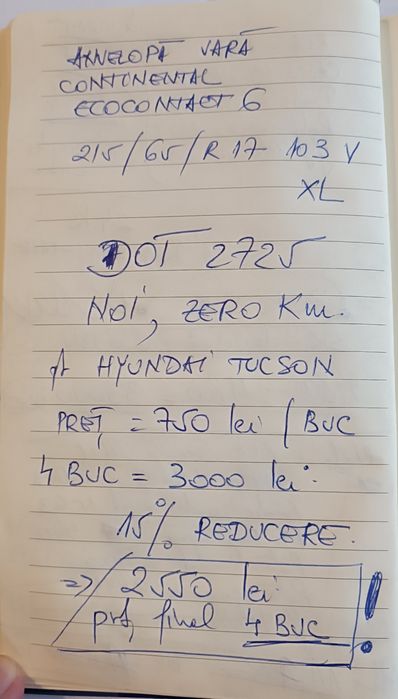 ANVELOPĂ VARĂ
CONTINENTAL
ECOCONTACT 6
215/65/R17 103 V
XL
DOT 2725
NOI, ZERO Km.
pt HYUNDAI TUCSON
PREȚ = 750 lei / BUC
4 BUC = 3000 lei.
15% REDUCERE.
=> 2550 lei.
preț final 4 BUC !